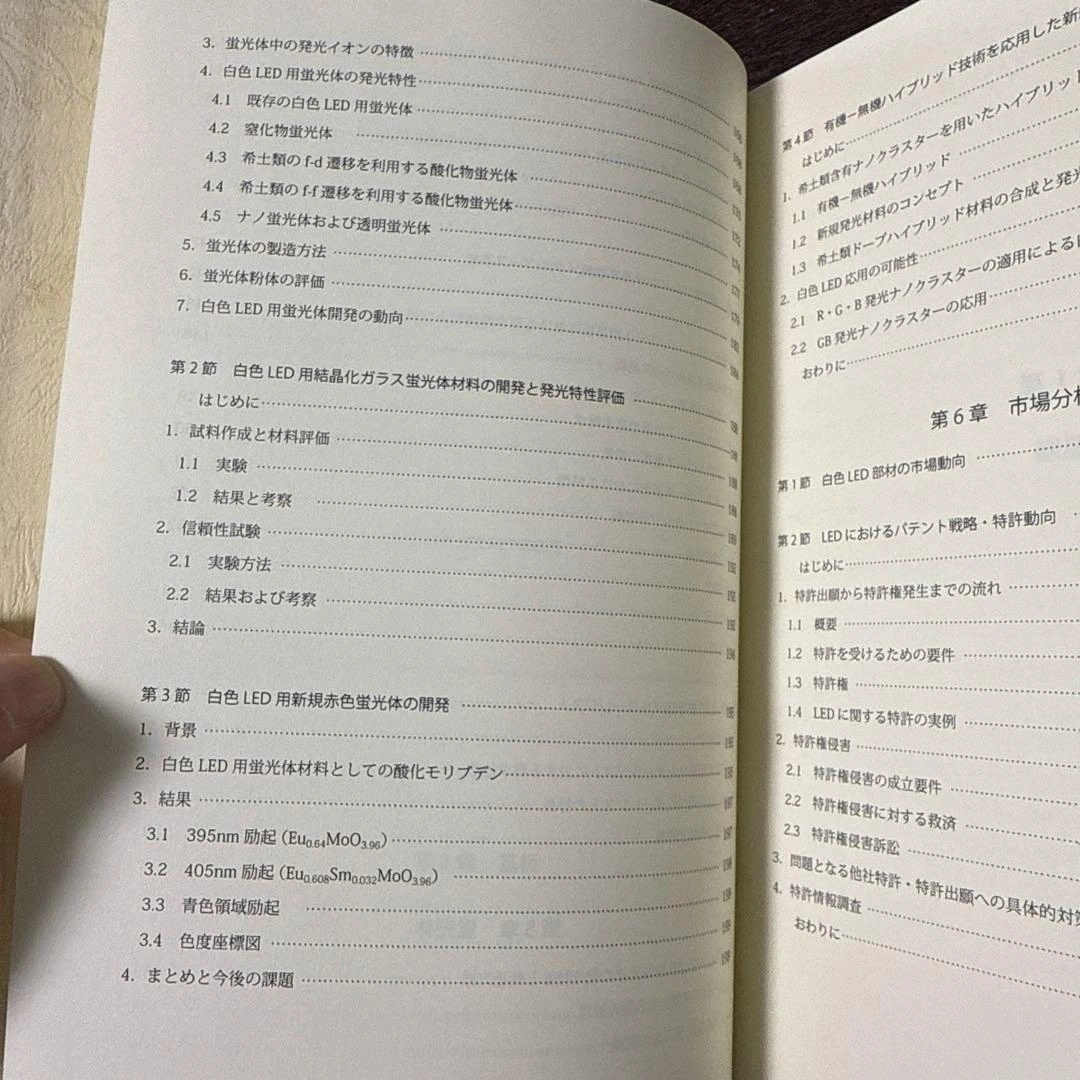 3. 蛍光体中の発光イオンの特徴
4. 白色 LED 用蛍光体の発光特性
4.1 既存の白色 LED 用蛍光体
4.2 窒化物蛍光体
4.3 希土類の f-d 遷移を利用する酸化物蛍光体
4.4 希土類の f-f 遷移を利用する酸化物蛍光体
4.5 ナノ蛍光体および透明蛍光体
5. 蛍光体の製造方法
6. 蛍光体粉体の評価
7. 白色 LED 用蛍光体開発の動向
第2節 白色 LED 用結晶化ガラス蛍光体材料の開発と発光特性評価
はじめに
1. 試料作成と材料評価
1.1 実験
1.2 結果と考察
2. 信頼性試験
2.1 実験方法
2.2 結果および考察
3. 結論 194
第3節 白色 LED 用新規赤色蛍光体の開発 195
1. 背景 195
2. 白色 LED 用蛍光体材料としての酸化モリブデン 195
3. 結果 197
3.1 395nm 励起 (Eu0.64MoO3.96) 197
3.2 405nm 励起 (Eu0.608Sm0.032MoO3.96) 198
3.3 青色領域励起 199
3.4 色度座標図 199
4. まとめと今後の課題 199
第4節 有機－無機ハイブリッド技術を応用した新
はじめに
1. 希土類含有ナノクラスターを用いたハイブリッド
1.1 有機－無機ハイブリッド
1.2 新規発光材料のコンセプト
1.3 希土類ドープハイブリッド材料の合成と発光
2. 白色 LED 応用の可能性
2.1 R・G・B 発光ナノクラスターの適用による
2.2 GB 発光ナノクラスターの応用
おわりに
第6章 市場分析
第1節 白色 LED 部材の市場動向
第2節 LED におけるパテント戦略・特許動向
はじめに
1. 特許出願から特許権発生までの流れ
1.1 概要
1.2 特許を受けるための要件
1.3 特許権
1.4 LED に関する特許の実例
2. 特許権侵害
2.1 特許権侵害の成立要件
2.2 特許権侵害に対する救済
2.3 特許権侵害訴訟
3. 問題となる他社特許・特許出願への具体的対策
4. 特許情報調査
おわりに